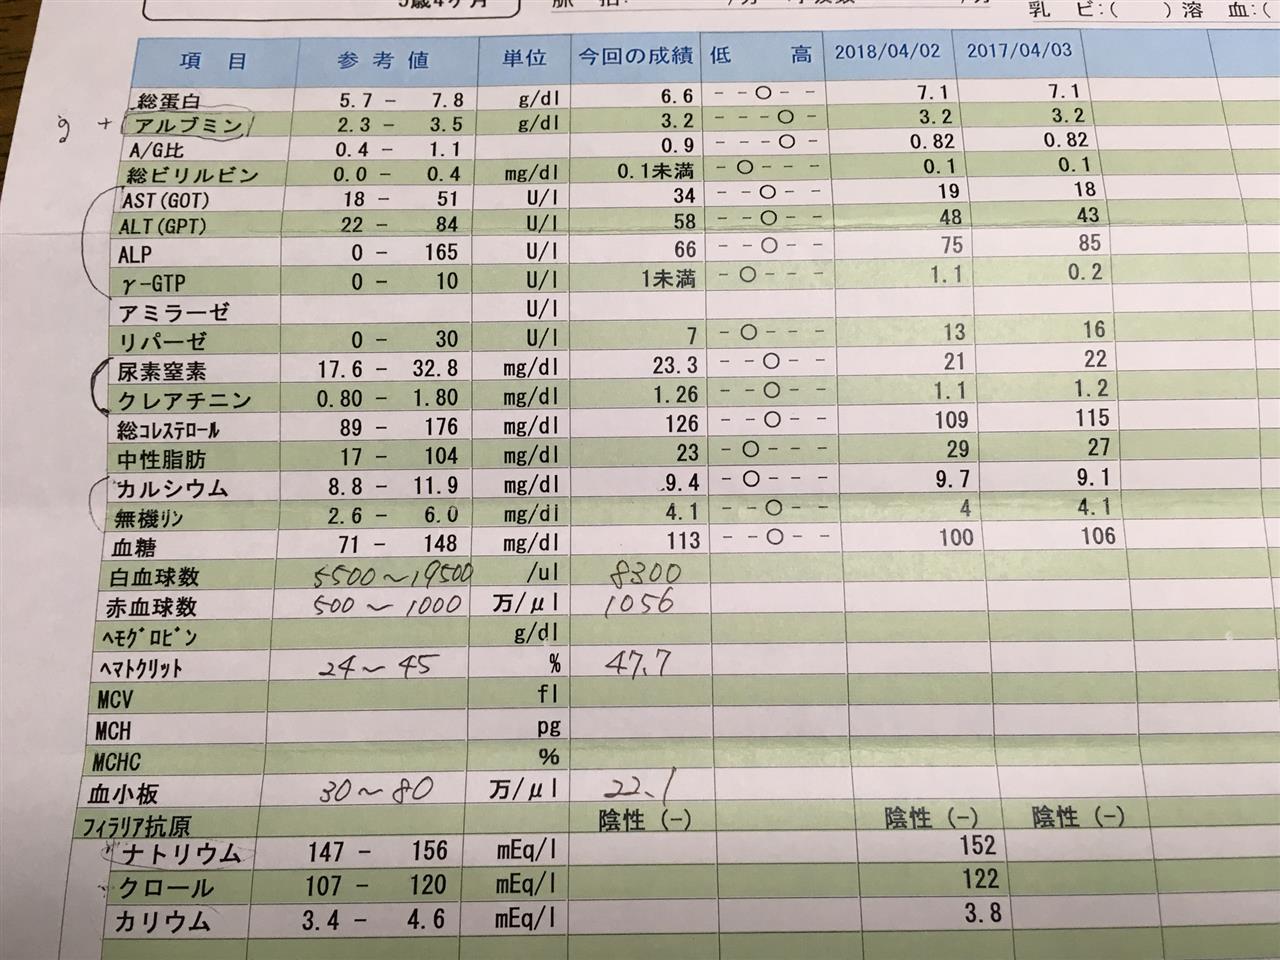 5歳4ヶ月
乳 ビ:( )溶 血:(
項 目 参 考 値 単位 今回の成績 低 高 2018/04/02 2017/04/03
総蛋白 5.7 - 7.8 g/dl 6.6 - - ○ - - 7.1 7.1
g + アルブミン 2.3 - 3.5 g/dl 3.2 - - - ○ - 3.2 3.2
A/G比 0.4 - 1.1 0.9 - - - ○ - 0.82 0.82
総ビリルビン 0.0 - 0.4 mg/dl 0.1未満 - ○ - - - 0.1 0.1
AST(GOT) 18 - 51 U/l 34 - - ○ - - 19 18
ALT(GPT) 22 - 84 U/l 58 - - ○ - - 48 43
ALP 0 - 165 U/l 66 - - ○ - - 75 85
γ-GTP 0 - 10 U/l 1未満 - ○ - - - 1.1 0.2
アミラーゼ U/l
リパーゼ 0 - 30 U/l 7 - ○ - - - 13 16
尿素窒素 17.6 - 32.8 mg/dl 23.3 - - ○ - - 21 22
クレアチニン 0.80 - 1.80 mg/dl 1.26 - - ○ - - 1.1 1.2
総コレステロール 89 - 176 mg/dl 126 - - ○ - - 109 115
中性脂肪 17 - 104 mg/dl 23 - ○ - - - 29 27
カルシウム 8.8 - 11.9 mg/dl 9.4 - ○ - - - 9.7 9.1
無機リン 2.6 - 6.0 mg/dl 4.1 - - ○ - - 4 4.1
血糖 71 - 148 mg/dl 113 - - ○ - - 100 106
白血球数 5500～19500 /ul 8300
赤血球数 500～1000 万/μl 1056
ヘモグロビン g/dl
ヘマトクリット 24～45 % 47.7
MCV fl
MCH pg
MCHC %
血小板 30～80 万/μl 22.1
フィラリア抗原 陰性 (-) 陰性 (-) 陰性 (-)
ナトリウム 147 - 156 mEq/l 152
クロール 107 - 120 mEq/l 122
カリウム 3.4 - 4.6 mEq/l 3.8